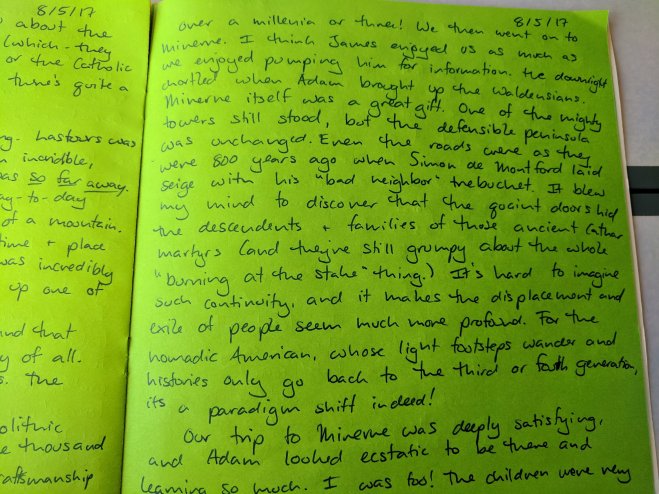 8/5/17
about the
(which - they
or the Catholic
tune's quite a
hastours was
incridble,
as so far away.
ay-to-day
of a mountain.
time + place
was incredibly
up one of
nd that
y of all.
s. The
olithic
e thousand
craftsmanship
8/5/17
over a millenia or three! We then went on to
Minerne. I think James enjoyed us as much as
we enjoyed pumping him for information. He downright
chortled when Adam brought up the Waldensians.
Minerne itself was a great gift. One of the mighty
towers still stood, but the defensible peninsula
was unchanged. Even the roads were as they
were 800 years ago when Simon de Montford laid
seige with his "bad neighbor" trebuchet. It blew
my mind to discover that the quaint doors hid
the descendents + families of those ancient Cathar
martyrs (and they're still grumpy about the whole
"burning at the stake" thing.) It's hard to imagine
such continuity, and it makes the displacement and
exile of people seem much more profound. For the
nomadic American, whose light footsteps wander and
histories only go back to the third or fouth generation,
its a paradigm shift indeed!
Our trip to Minerne was deeply satisfying,
and Adam looked ecstatic to be there and
learning so much. I was too! The children were very